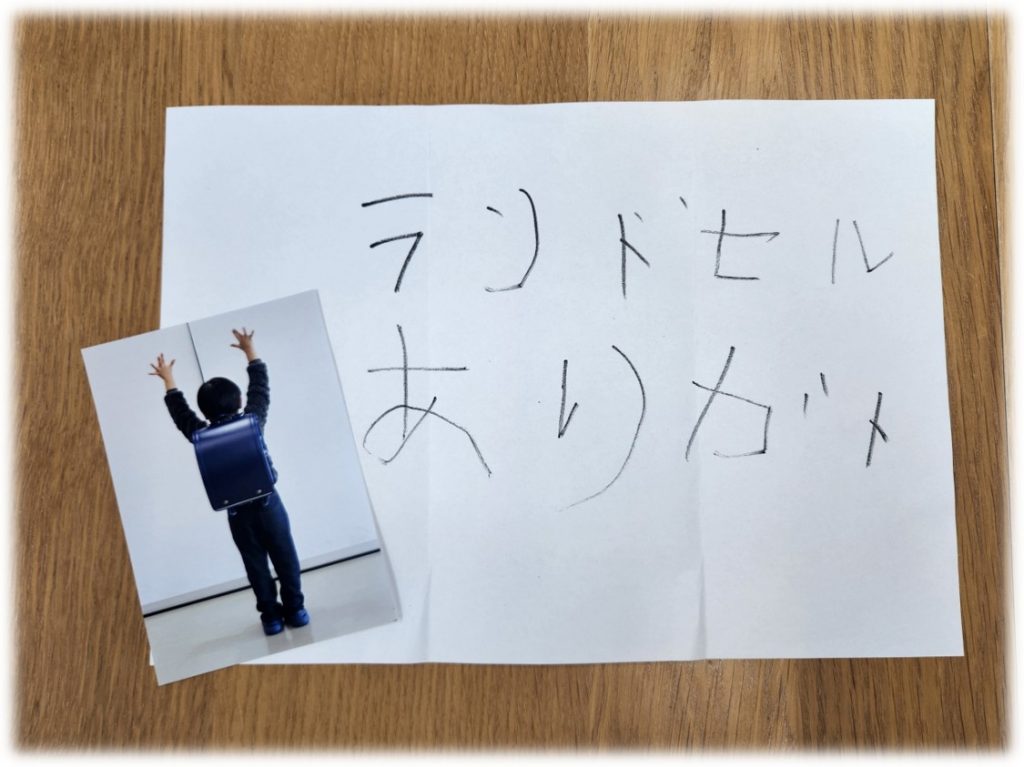 ランドセル
ありガト